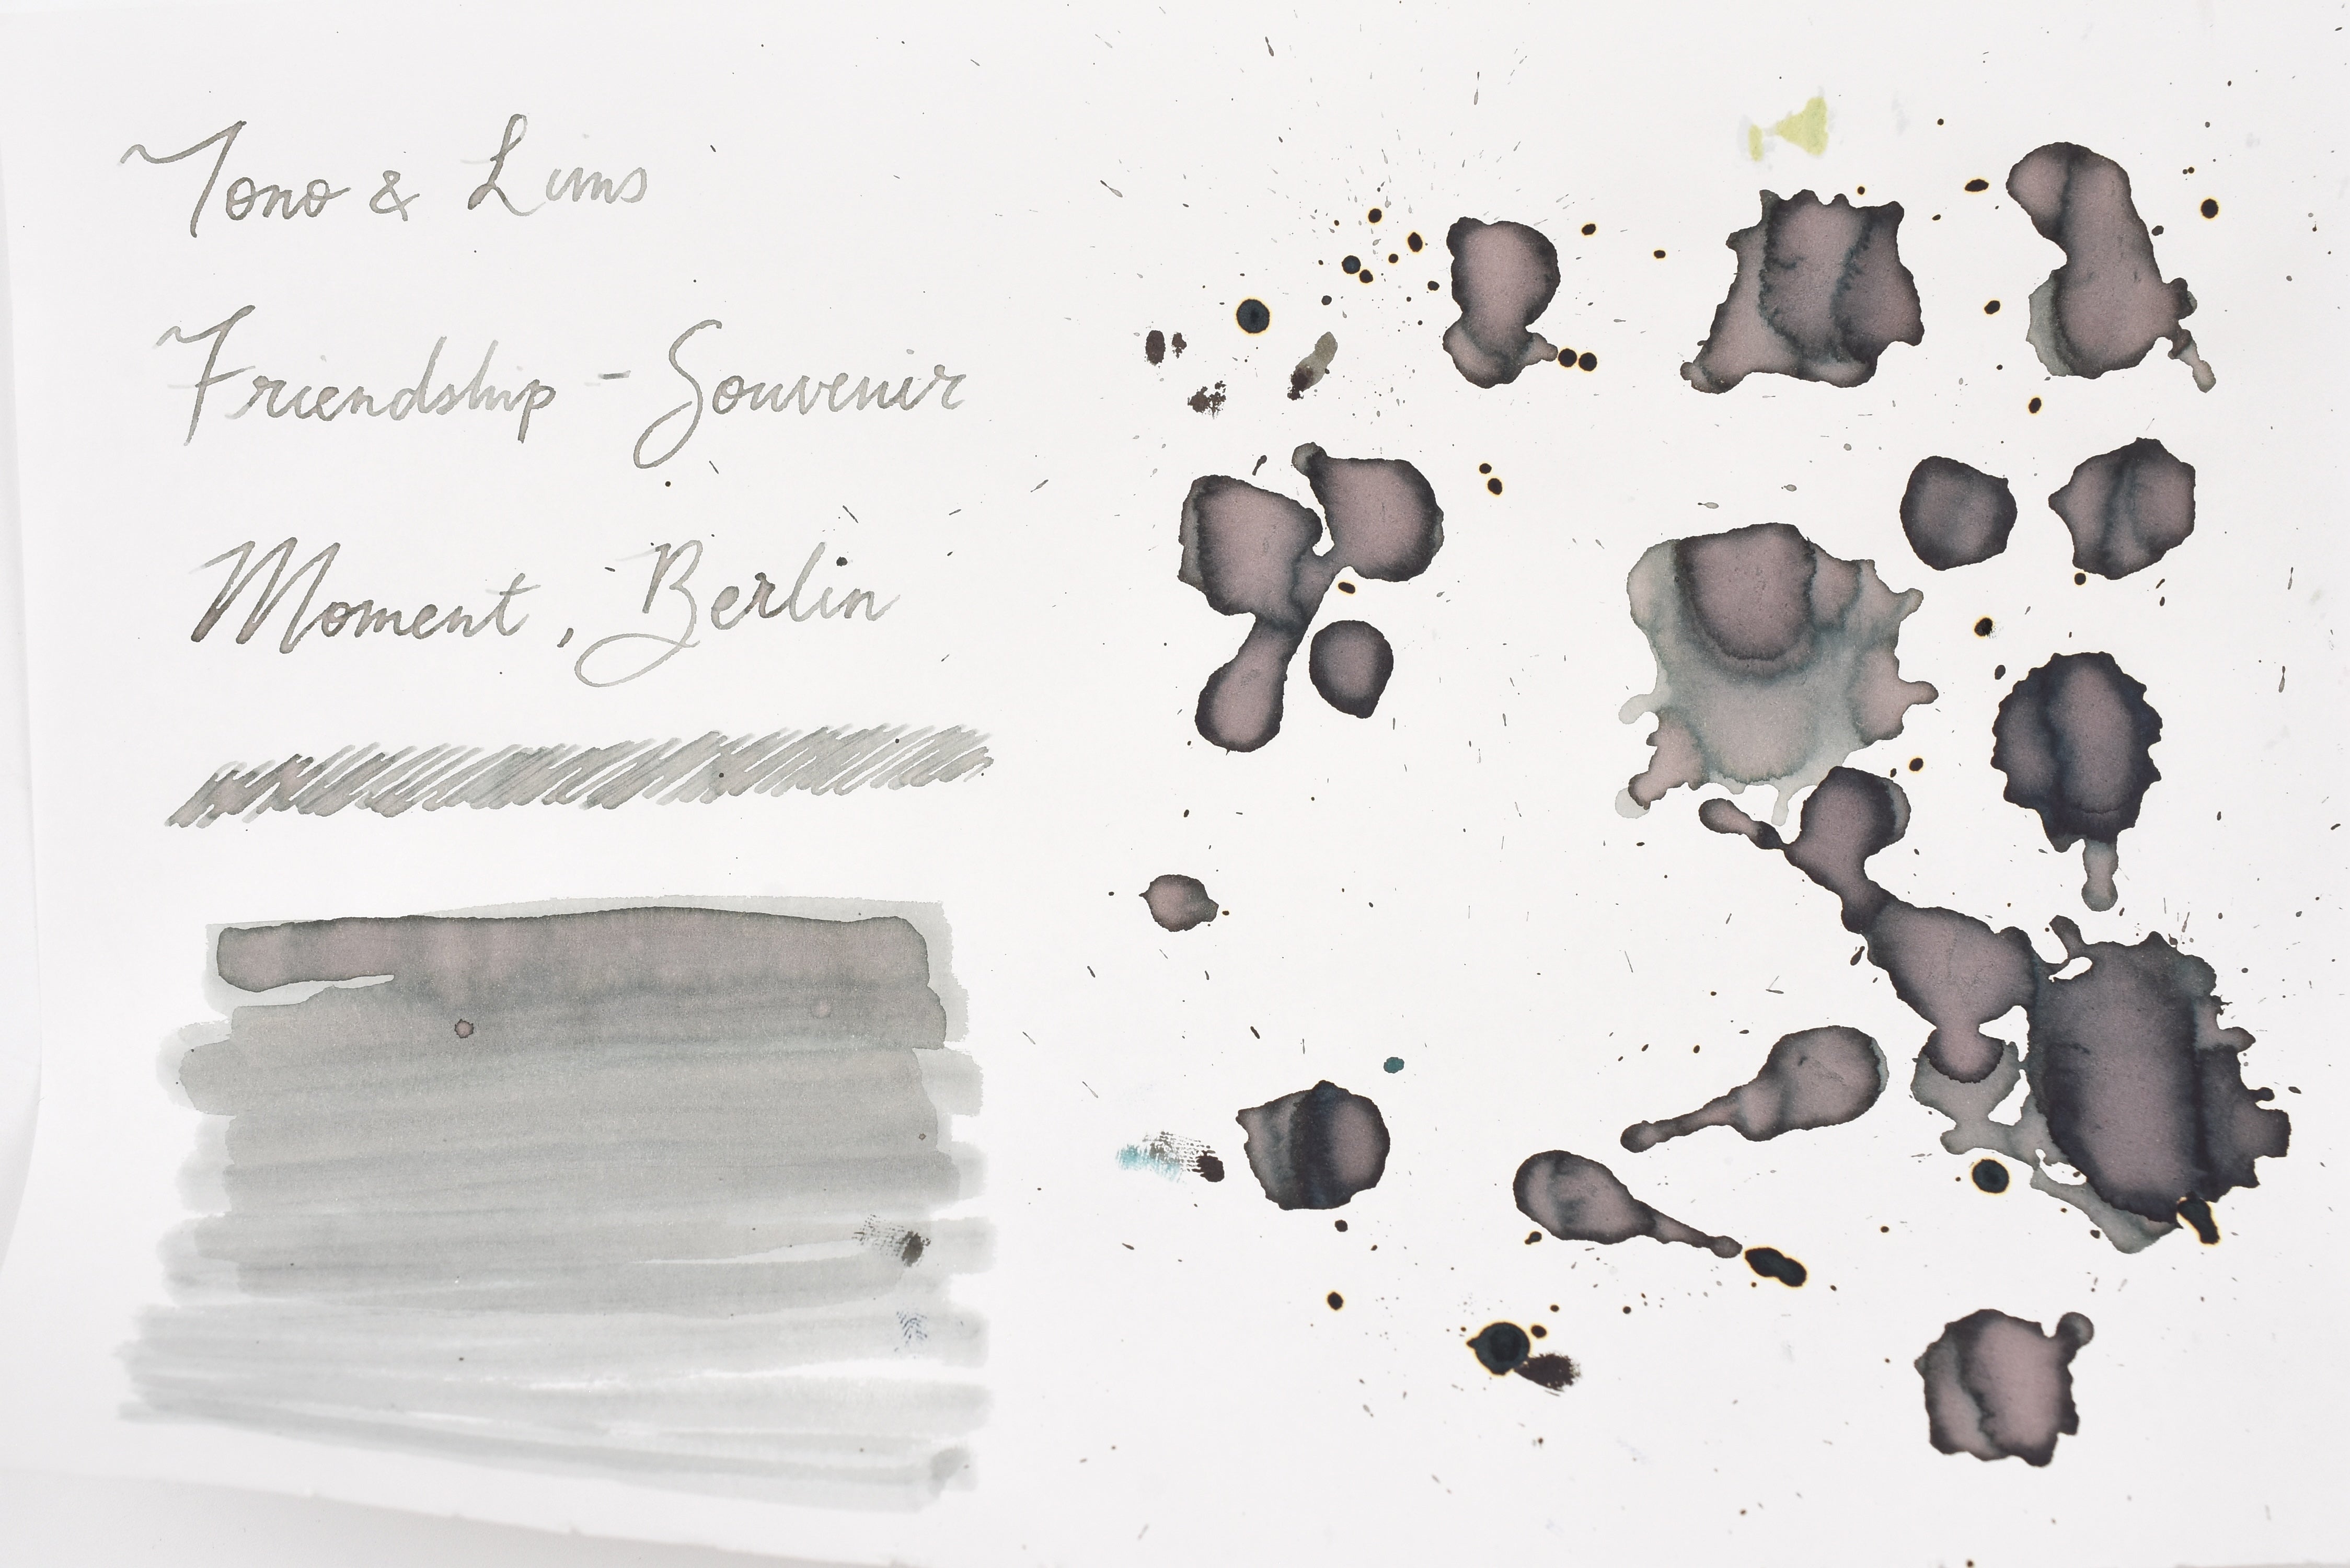 Tono & Lims
Friendship - Souvenir
Moment, Berlin